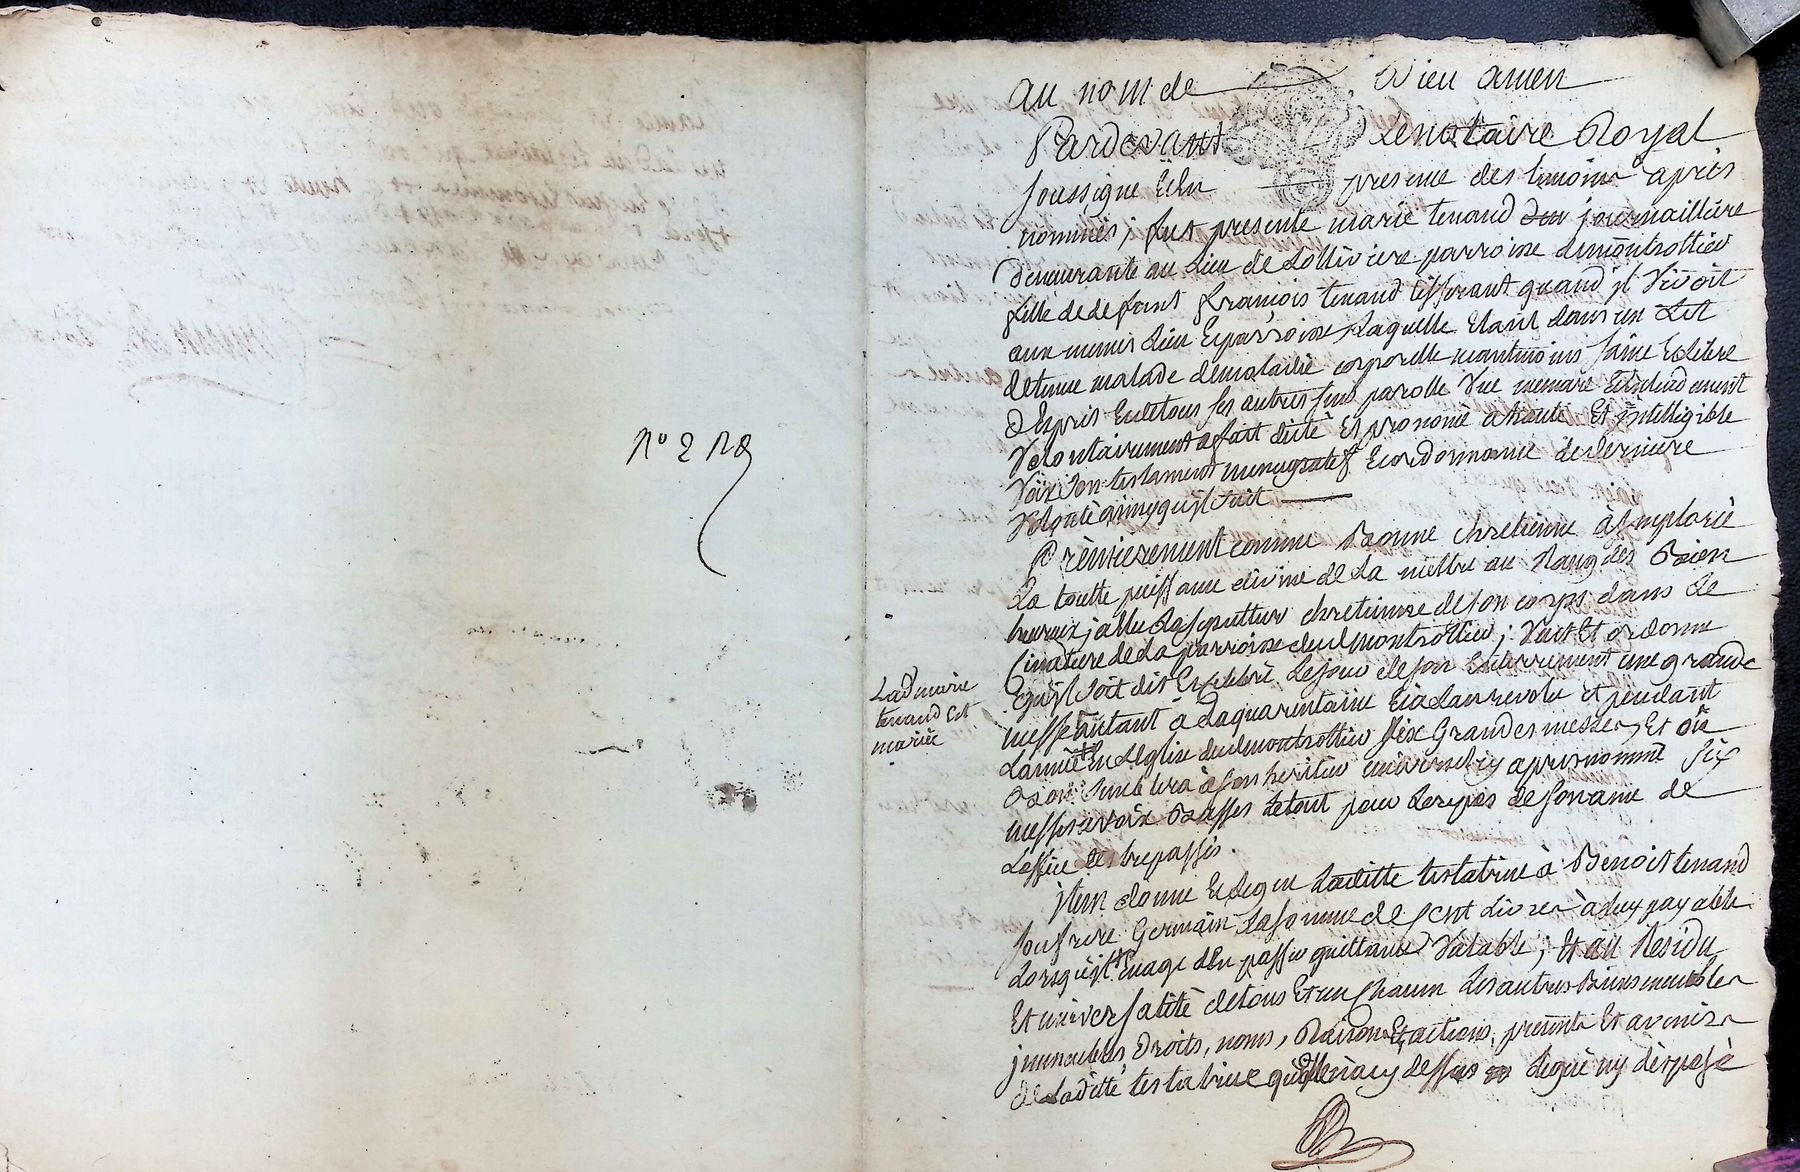 N° 2 n8
Lad marie
tenand est
mariée
au nom de Dieu amen
Pardevant Le notaire Royal
soussigné Et En presence des temoins après
nommés, fut presente marie tenand journailliere
demeurante au Lieu de Lolliviere parroisse de montrottier
fille de defunt François tenand tisserant quand jl Vivoit
aux memes Lieu Et parroisse, Laquelle Etant dans un Lit
detenue malade de maladie corporelle neantmoins saine Et Libre
d'Esprit Et de tous ses autres sens parolle Vue memoire Et Entendement
Volontairement a fait dicté Et prononcé a haute Et jntelligible
Voix son testament nuncupatif Et ordonnance de derniere
Volonté ainsy qu'jl suit
Premierement comme Bonne chretienne à jmploré
La toutte puissance divine de La mettre au Rang des Bien
heureux, a Elu La sepulture chretienne de son corps dans Le
cimetiere de La parroisse dud montrottier; Veut Et ordonne
qu'jl soit dit Et celebré Le jour de son Enterrement une grande
messe autant à La quarentaine Et a L'an revolu et pendant
L'année En L'Eglise dud montrottier six Grandes messes, Et où
Bon semblera à son heritier universel cy apres nommé six
messes a voix Basses Le tout pour Le repos de son ame de
L'office des trepassés.
jtem donne Et Legue Laditte testatrice à Benoist tenand
son frere Germain La somme de cent Livres à Luy payable
Lorsqu'jl sera En age d'En passer quittance Valable; Et au Residu
Et universalité de tous Et un chacun Les autres Biens meubles
jmmeubles Droits, noms, Raisons Et actions, presents Et avenirs
de Laditte testatrice qu'Elle n'a cy dessus Legué ny disposé